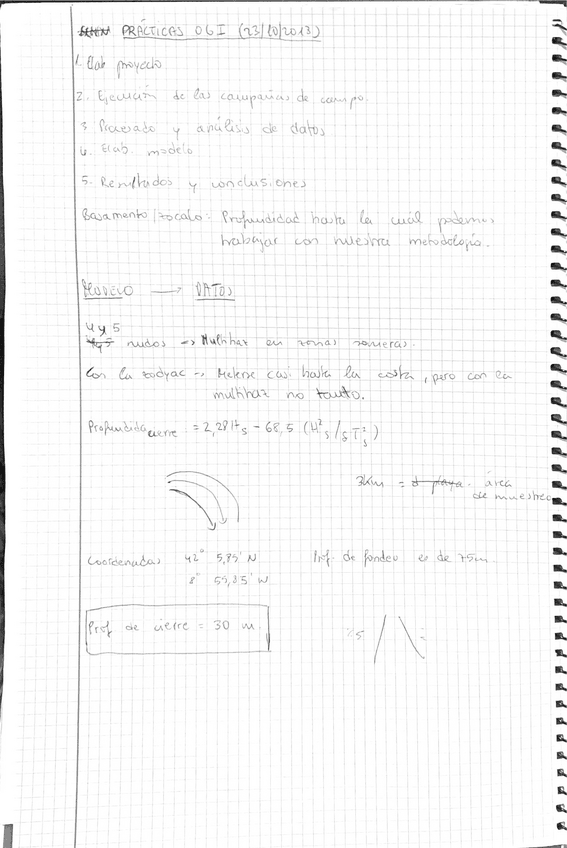 PRÁCTICAS OGI (23/10/2013)
1. Elab proyecto
2. Ejecución de las campañas de campo.
3. Procesado y análisis de datos
4. Elab. modelo
5. Resultados y conclusiones
Basamento/zócalo: Profundidad hasta la cual podemos
trabajar con nuestra metodología.
MODELO → DATOS
4 y 5
nudos → Multihaz en zonas someras.
Con la zodyac → Meterse casi hasta la costa, pero con la
multihaz no tanto.
Profundidad cierre = 2,28 Hs - 68,5 (H²s/gT²s)
3km = d playa. área
de muestreo
Coordenadas 42° 5,85' N Prof. de fondeo es de 75m.
8° 55,85' W
Prof de cierre = 30 m.